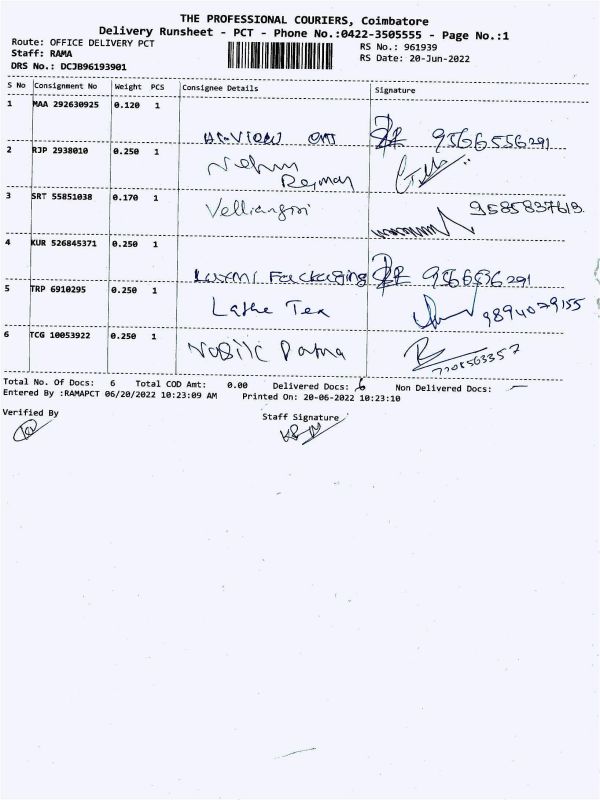 THE PROFESSIONAL COURIERS, Coimbatore
Delivery Runsheet - PCT - Phone No.:0422-3505555 - Page No.:1
Route: OFFICE DELIVERY PCT
Staff: RAMA
DRS No.: DCJB96193901
RS No.: 961939
RS Date: 20-Jun-2022
S No Consignment No Weight PCS Consignee Details Signature
1 MAA 292630925 0.120 1
9566556291
2 RJP 2938010 0.250 1
Nehru
3 SRT 55851038 0.170 1
Velliangiri 9585837619
4 KUR 526845371 0.250 1
Luxmi Packaging 9566556291
5 TRP 6910295 0.250 1
Lathe Tex 9894079155
6 TCG 10053922 0.250 1
Total No. Of Docs: 6 Total COD Amt: 0.00 Delivered Docs: 6 Non Delivered Docs: —
Entered By :RAMAPCT 06/20/2022 10:23:09 AM Printed On: 20-06-2022 10:23:10
Verified By
Staff Signature